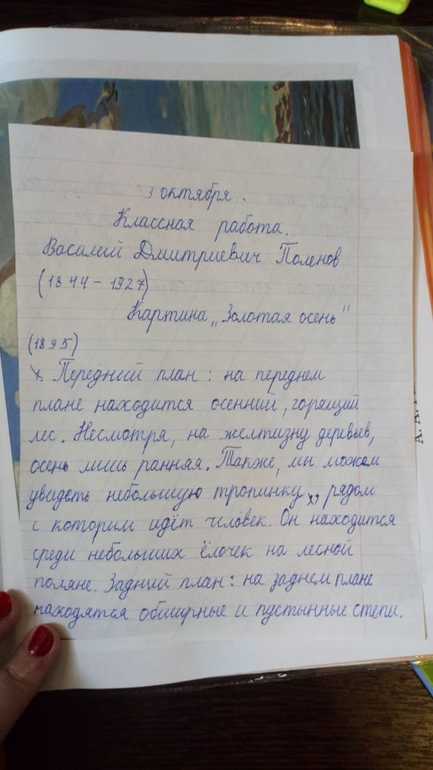 3 октября.
Классная работа.
Василий Дмитриевич Поленов
(1844-1927)
Картина „Золотая осень"
(1895)
Передний план: на переднем
плане находится осенний, горящий
лес. Несмотря, на желтизну деревьев,
осень лишь ранняя. Также, мы можем
увидеть небольшую тропинку, рядом
с которым идёт человек. Он находится
среди небольших ёлочек на лесной
поляне. Задний план: на заднем плане
находятся обширные и пустынные степи.